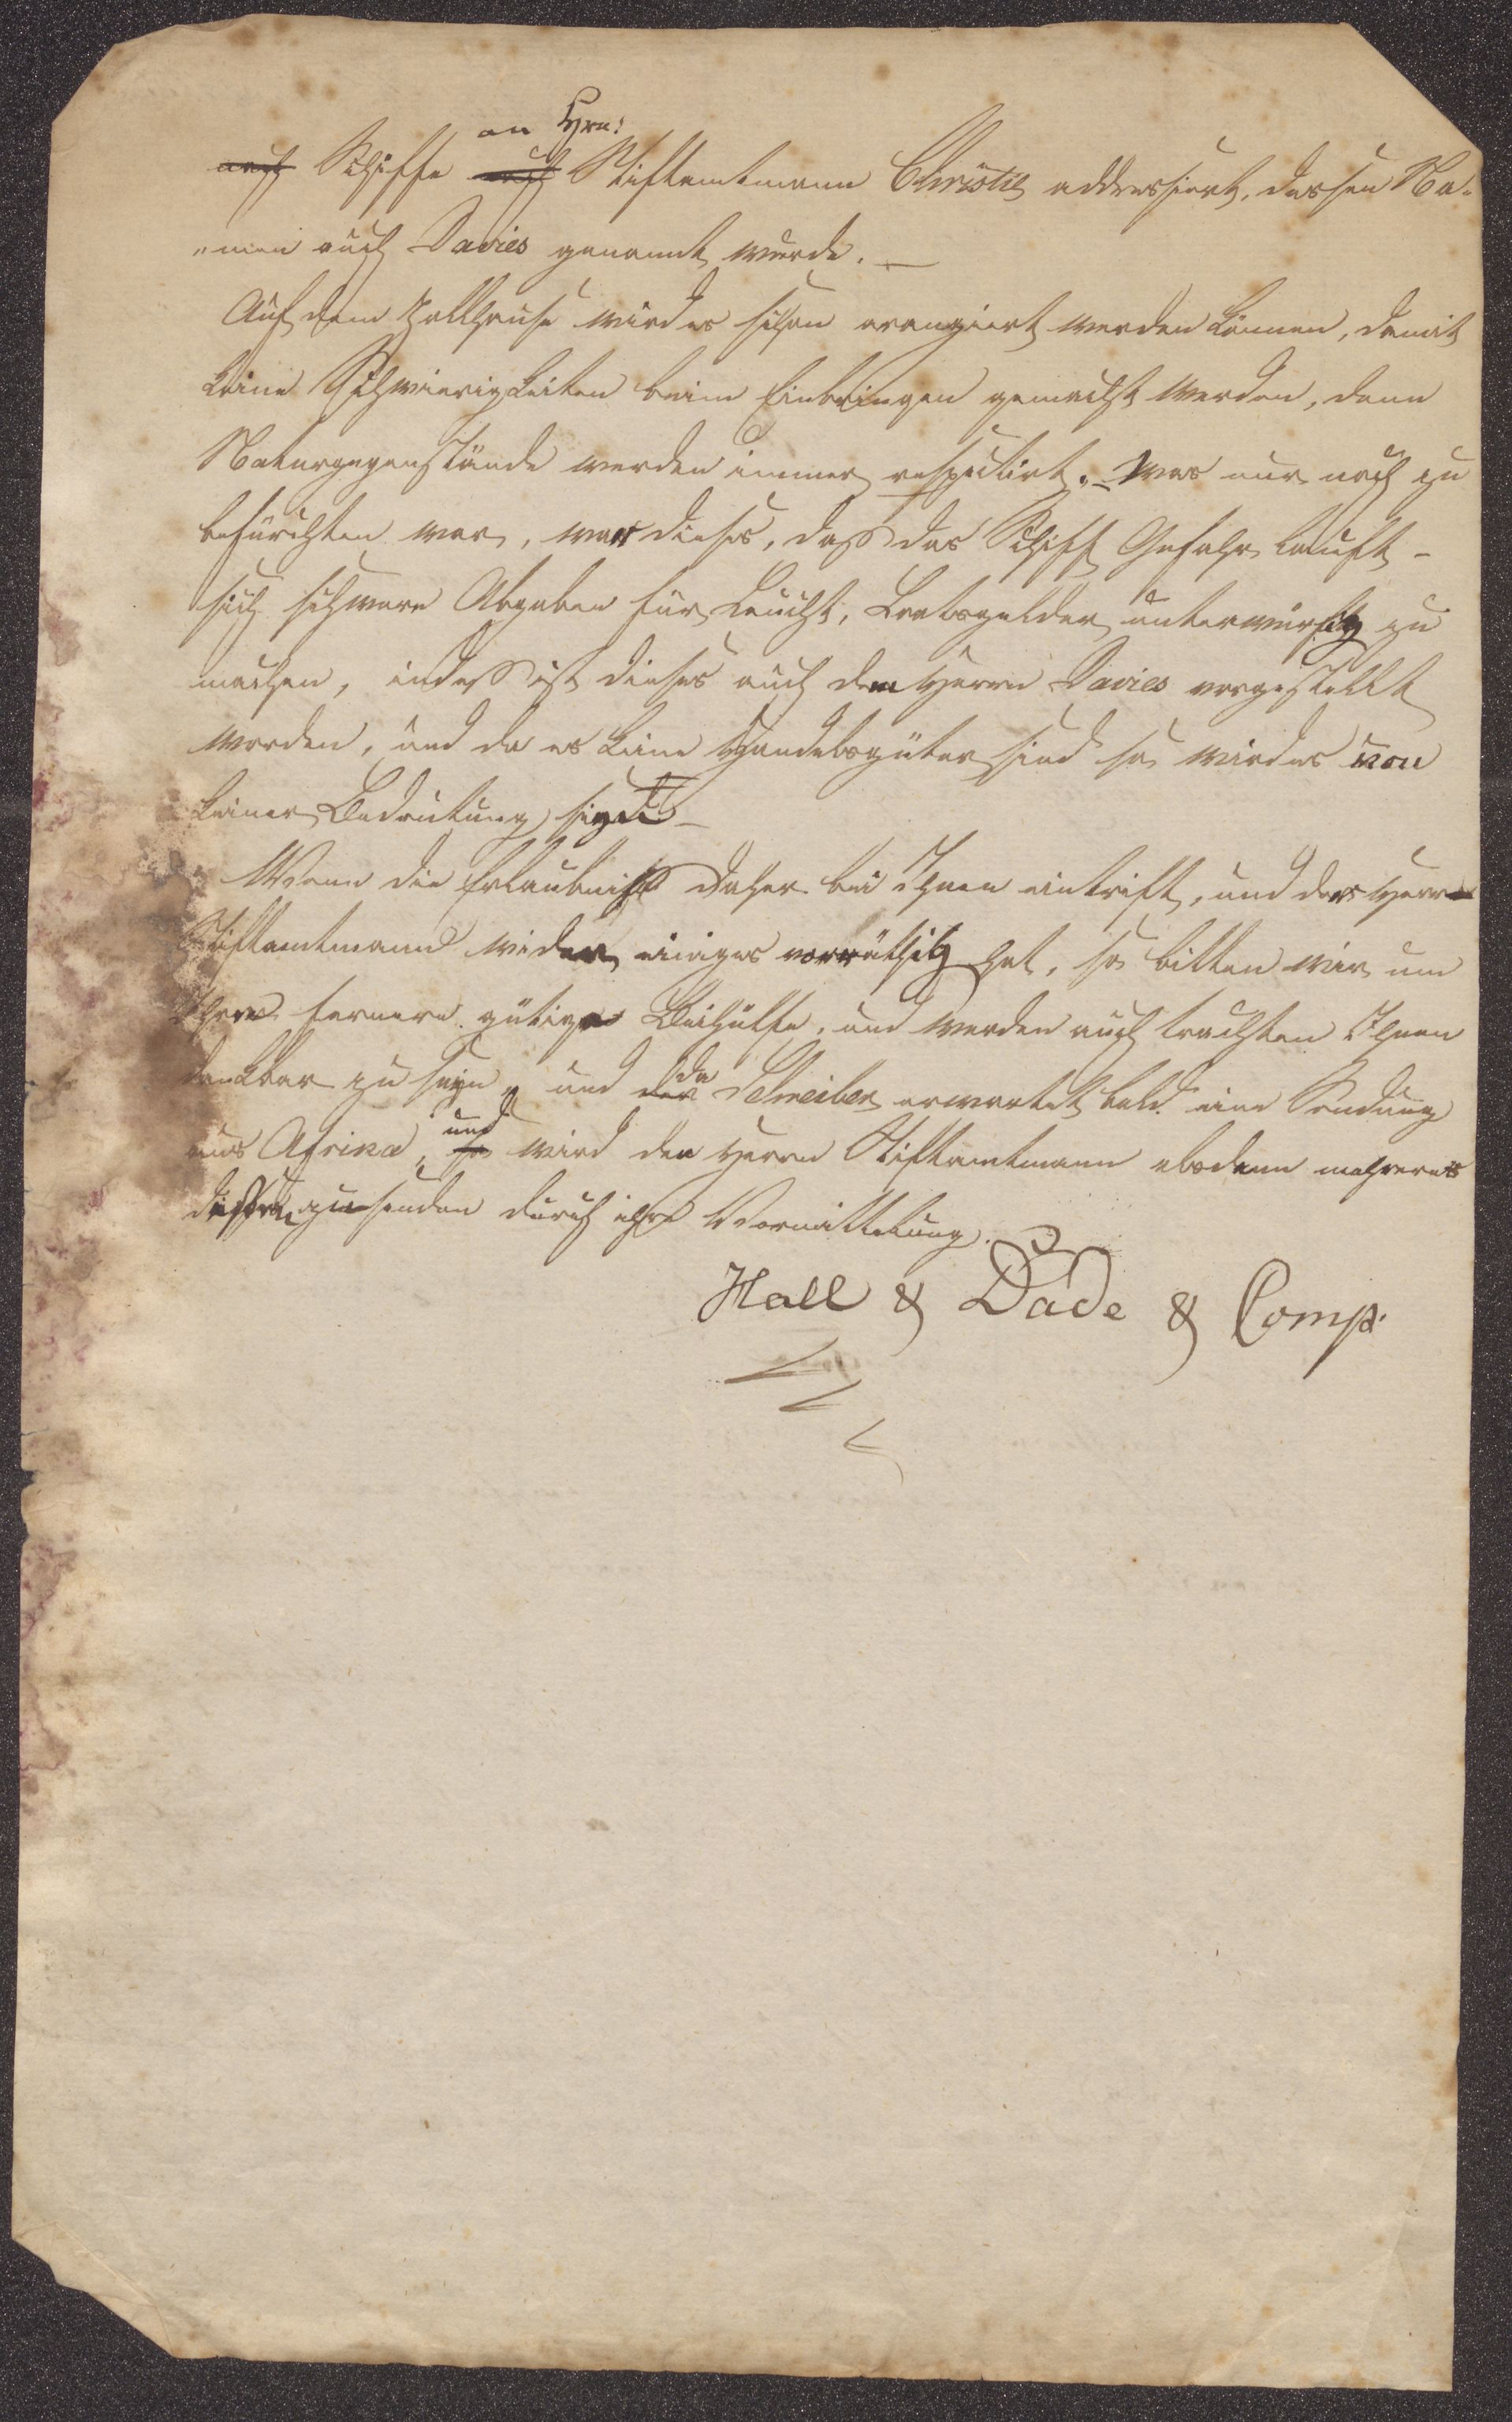 auch Schiffe auch an Hrn: Stiftamtmann Christie addressirt, dessen Na-
„men auch Davies genannt wurde. —
Auf dem Zollhause wird es schon arangiert werden können, damit
keine Schwierigkeiten beim Einbringen gemacht werden, denn
Naturgegenstände werden immer respectirt. – Was nur noch zu
befürchten war, war dieses, daß das Schiff Gefahr lauft –
sich schwere Abgaben für Leucht, Lootsgelder unterwürfig zu
machen, indeß ist dieses auch dem Herrn Davies vorgestellt
worden, und da es keine Handelsgüter sind so wird es von
keiner Bedeutung seyn –
Wenn die Erlaubniß daher bei Ihnen eintrift, und der Herr
Stiftamtmann wieder einiges vorräthig hat, so bitten wir um
Ihre fernere gütige Beihülfe, und werden auch trachten Ihnen
dankbar zu seyn, und der da Schreiber erwartet bald eine Sendung
aus Afrika, so und wird den Herrn Stiftamtmann alsdann mehreres
zusenden durch ihre Vermittelung.
Hall & Dade & Comp.